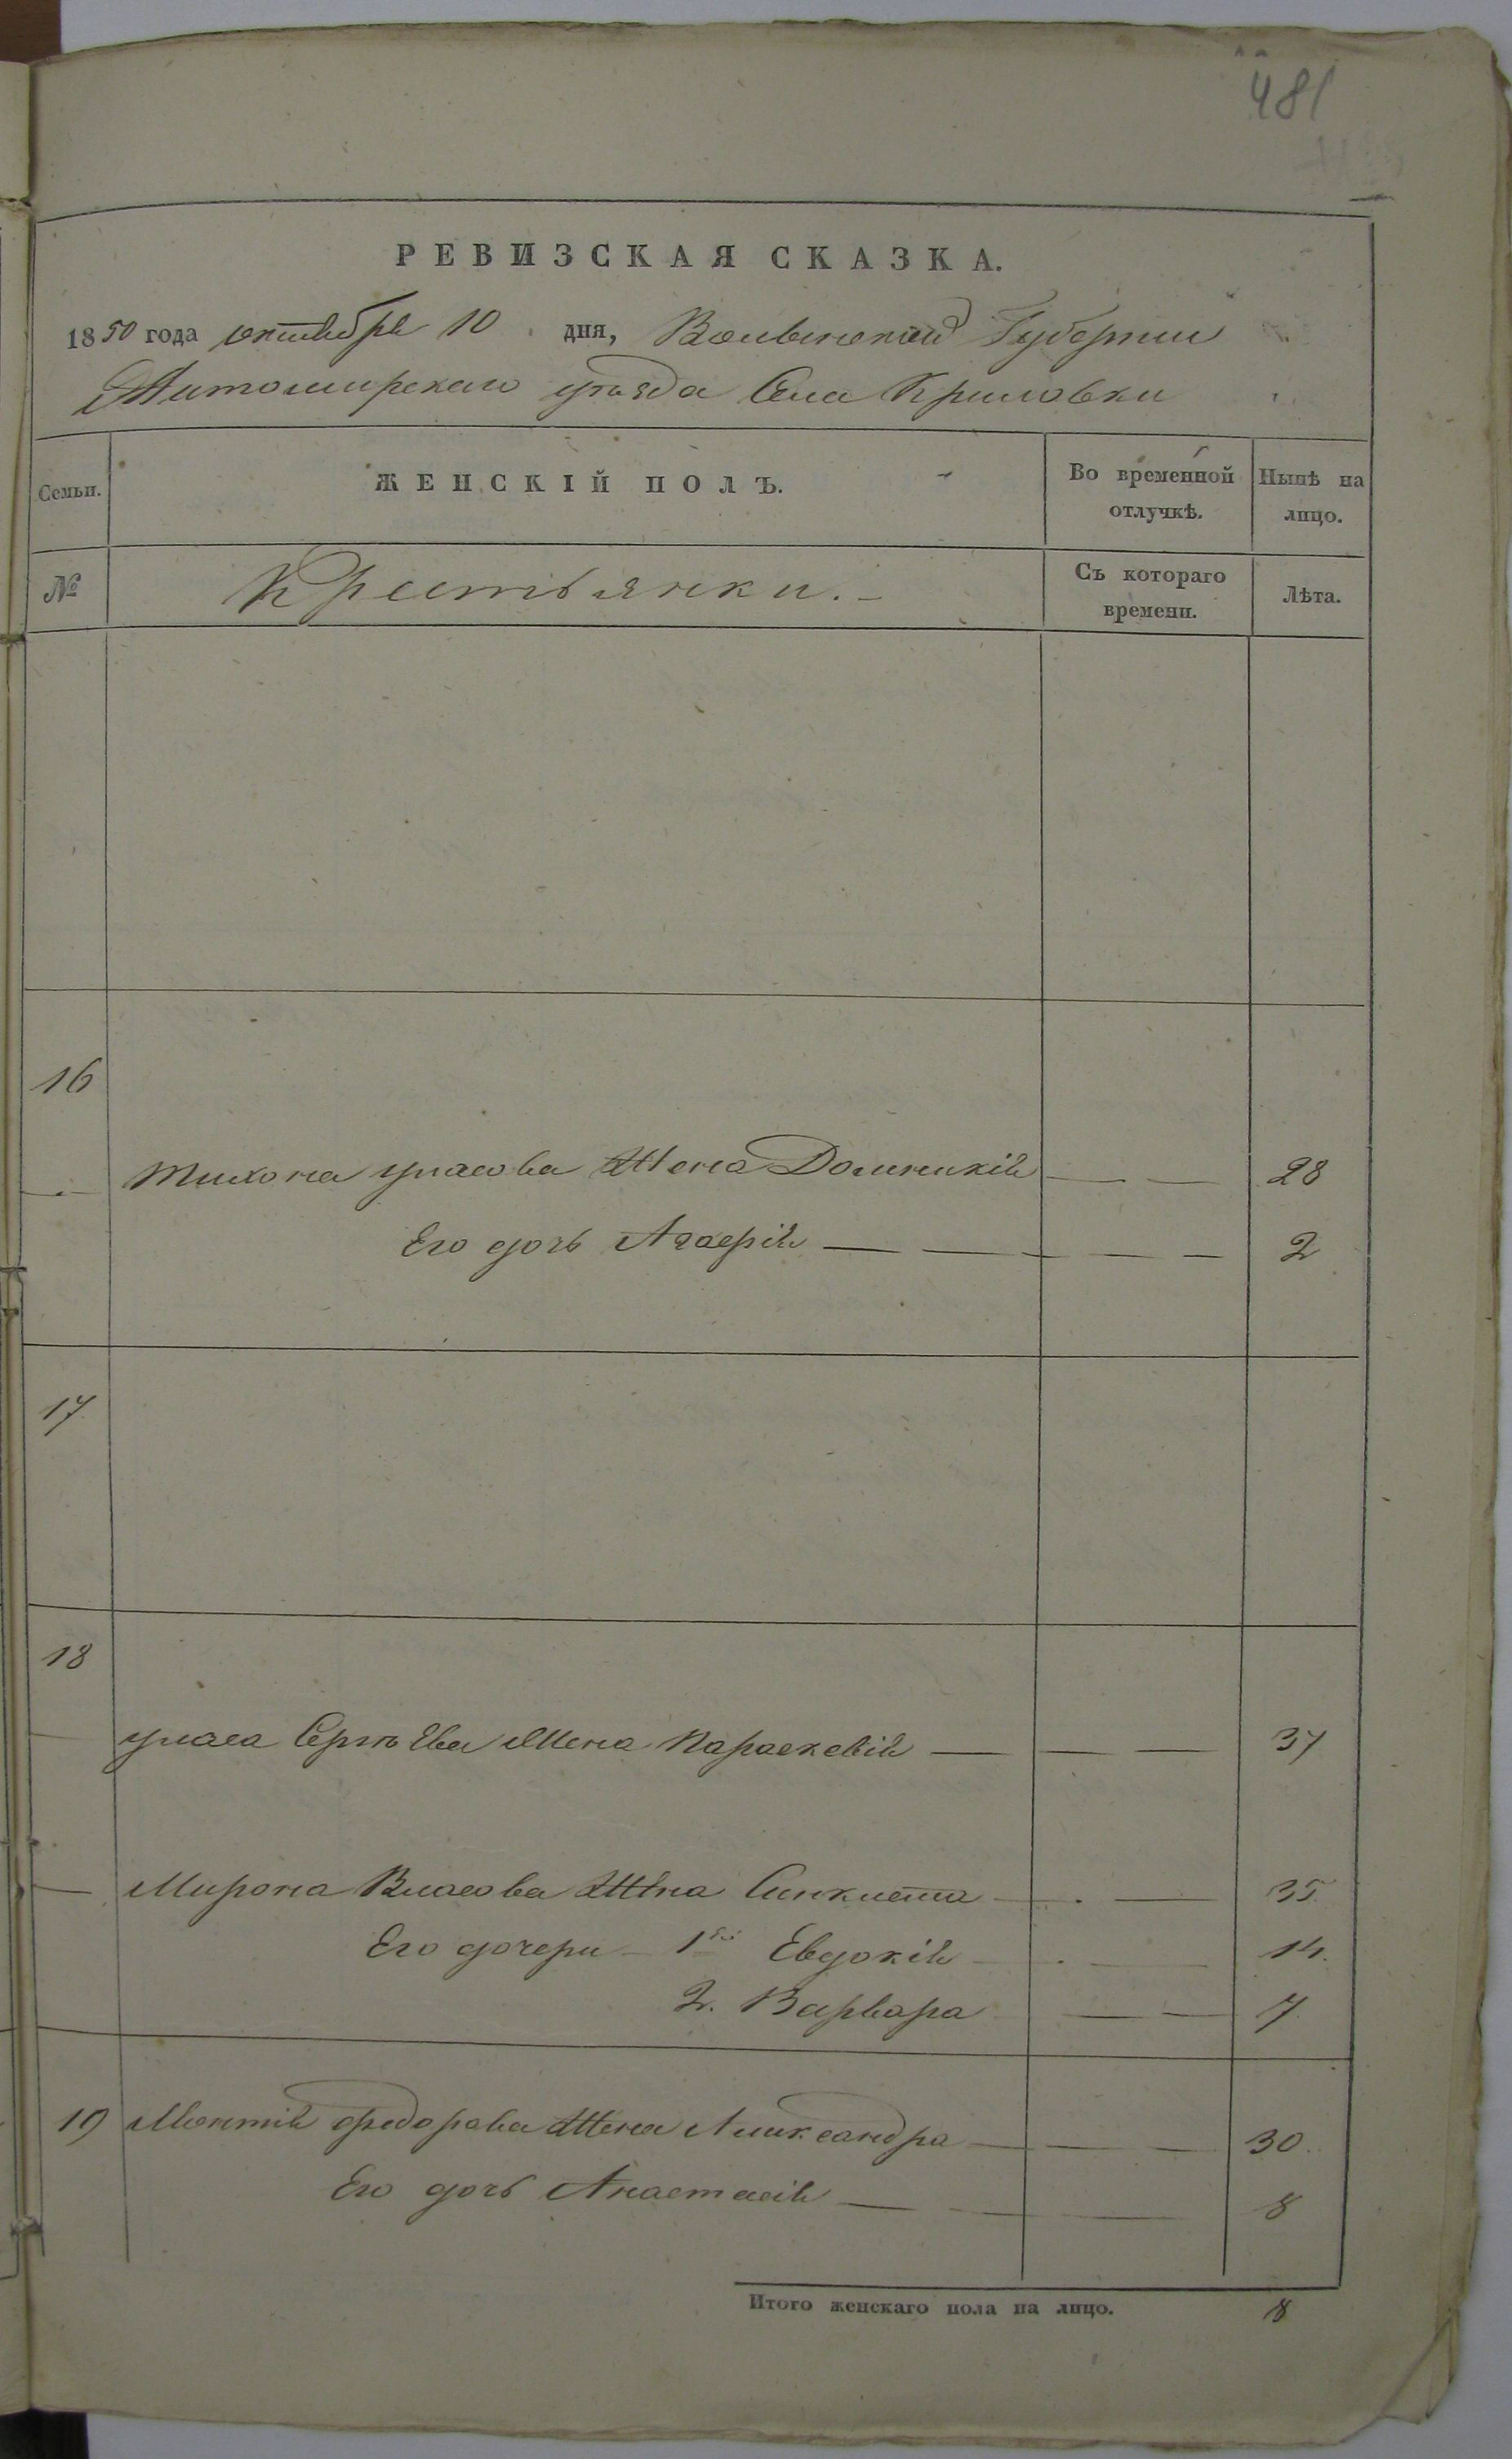 481
РЕВИЗСКАЯ СКАЗКА.
1850 года октября 10 дня, Волынской Губернии
Житомирскаго уѣзда Села Криловки
Семьи. ЖЕНСКІЙ ПОЛЪ. Во временной отлучкѣ. Нынѣ на лицо.
№ Крестьянки. Съ котораго времени. Лѣта.
16
Тихона Уласова Жена Домникія 28
Его дочь Агафія 2
17
18
Уласа Сергѣева Жена Параскевія 37
Мирона Власова Жена Синклета 35.
Его дочери 1я Евдокія 14.
2. Варвара 7
19 Федорова Жена Александра 30.
Его дочь Анастасія 8
Итого женскаго пола на лицо. 8